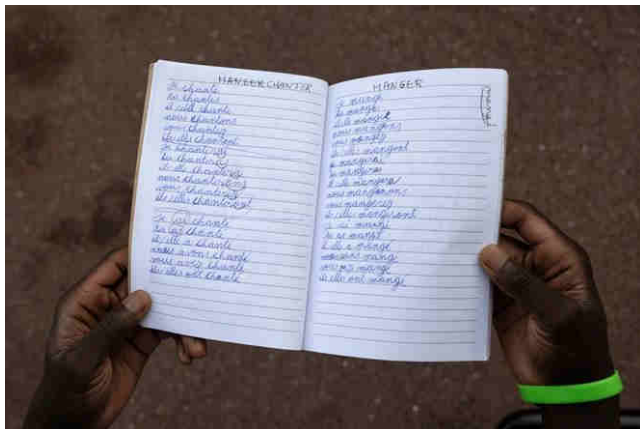 MANGER CHANTER
Je chante
tu chantes
il elle chante
nous chantons
vous chantez
ils elles chantent
Je chanterai
tu chanteras
il elle chantera
nous chanterons
vous chanterez
ils elles chanteront
Je chanté
tu chanté
il elle a chanté
nous avons chanté
vous avez chanté
ils elles ont chanté
MANGER
Je mange
tu mange
il elle mange
nous mangeons
vous mangez
ils elles mangent
Je mangerai
tu mangeras
il elle mangera
nous mangerons
vous mangerez
ils elles mangeront
mangé
tu as mangé
il elle a mangé
mangé
mangé
ils elles ont mangé